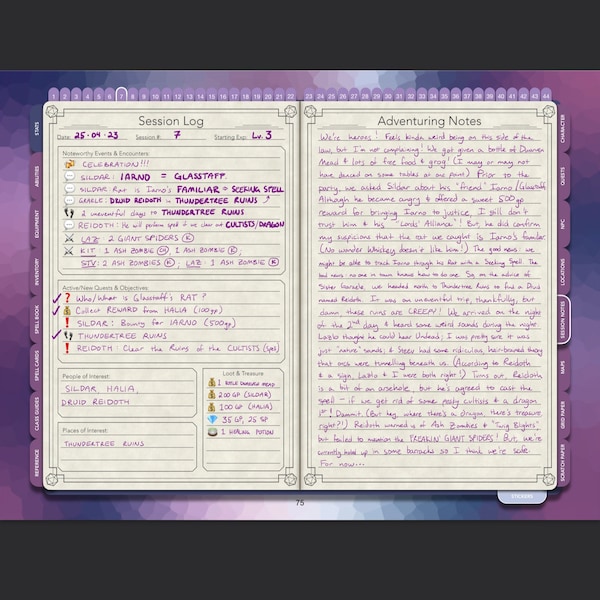 1 2 3 4 5 6 7 8 9 10 11 12 13 14 15 16 17 18 19 20 21 22 23 24 25 26 27 28 29 30 31 32 33 34 35 36 37 38 39 40 41 42 43 44
Session Log
Date: 25·04·23 Session #: 7 Starting Exp: Lv. 3
Noteworthy Events & Encounters:
CELEBRATION!!!
SILDAR: IARNO = GLASSTAFF
SILDAR: Rat is Iarno's FAMILIAR = SEEKING SPELL
GARELE: DRUID REIDOTH in THUNDERTREE RUINS
2 uneventful days to THUNDERTREE RUINS
REIDOTH: He will perform spell if we clear out CULTISTS/DRAGON
LAZ: 2 GIANT SPIDERS K
KIT: 1 ASH ZOMBIE 1 ASH ZOMBIE K
STV: 2 ASH ZOMBIES K; LAZ: 1 ASH ZOMBIE K
Active/New Quests & Objectives:
Who/What is Glasstaff's RAT?
Collect REWARD from HALIA (100gp)
SILDAR: Bounty for IARNO (500gp)
THUNDERTREE RUINS
REIDOTH: Clear the Ruins of the CULTISTS (Spell)
People of Interest:
SILDAR, HALIA,
DRUID REIDOTH
Places of Interest:
THUNDERTREE RUINS
Loot & Treasure
1 BOTTLE DWARVEN MEAD
200 GP (SILDAR)
100 GP (HALIA)
35 GP, 25 SP
1 HEALING POTION
Adventuring Notes
We're heroes! Feels kinda weird being on this side of the
law, but I'm not complaining! We got given a bottle of Dwarven
Mead & lots of free food & grog! (I may or may not
have danced on some tables at one point) Prior to the
party, we asked Sildar about his "friend" Iarno (Glasstaff)
Although he became angry & offered a sweet 500gp
reward for bringing Iarno to justice, I still don't
trust him & his "Lords' Alliance"! But, he did confirm
my suspicions that the rat we caught is Iarno's familiar
(No wonder Whiskey doesn't like him!) The good news: we
might be able to track Iarno through his Rat with a Seeking Spell. The
bad news: no one in town knows how to do one. So, on the advice of
Sister Garaele, we headed north to Thundertree Ruins to find a Druid
named Reidoth. It was an uneventful trip, thankfully, but
damn these ruins are CREEPY! We arrived on the night
of the 2nd day & heard some weird sounds during the night.
Lazlo thought he could hear Undead; I was pretty sure it was
just "nature" sounds; & Steev had some ridiculous, hair-brained theory
that orcs were tunnelling beneath us. (According to Reidoth
& a sign, Lazlo & I were both right!) Turns out, Reidoth
is a bit of an arsehole, but he's agreed to cast the
spell - if we get rid of some pesky cultists & a dragon
1st! Dammit. (But hey, where there's a dragon, there's treasure
right?!) Reidoth warned us of Ash Zombies & "Twig Blights",
but failed to mention the FREAKIN' GIANT SPIDERS! But, we're
currently holed up in some barracks so I think we're safe.
For now...
STATS
ABILITIES
EQUIPMENT
INVENTORY
SPELL BOOK
SPELL CARDS
CLASS GUIDES
REFERENCE
CHARACTER
QUESTS
NPC
LOCATIONS
SESSION NOTES
MAPS
GRID PAPER
SCRATCH PAPER
75
STICKERS